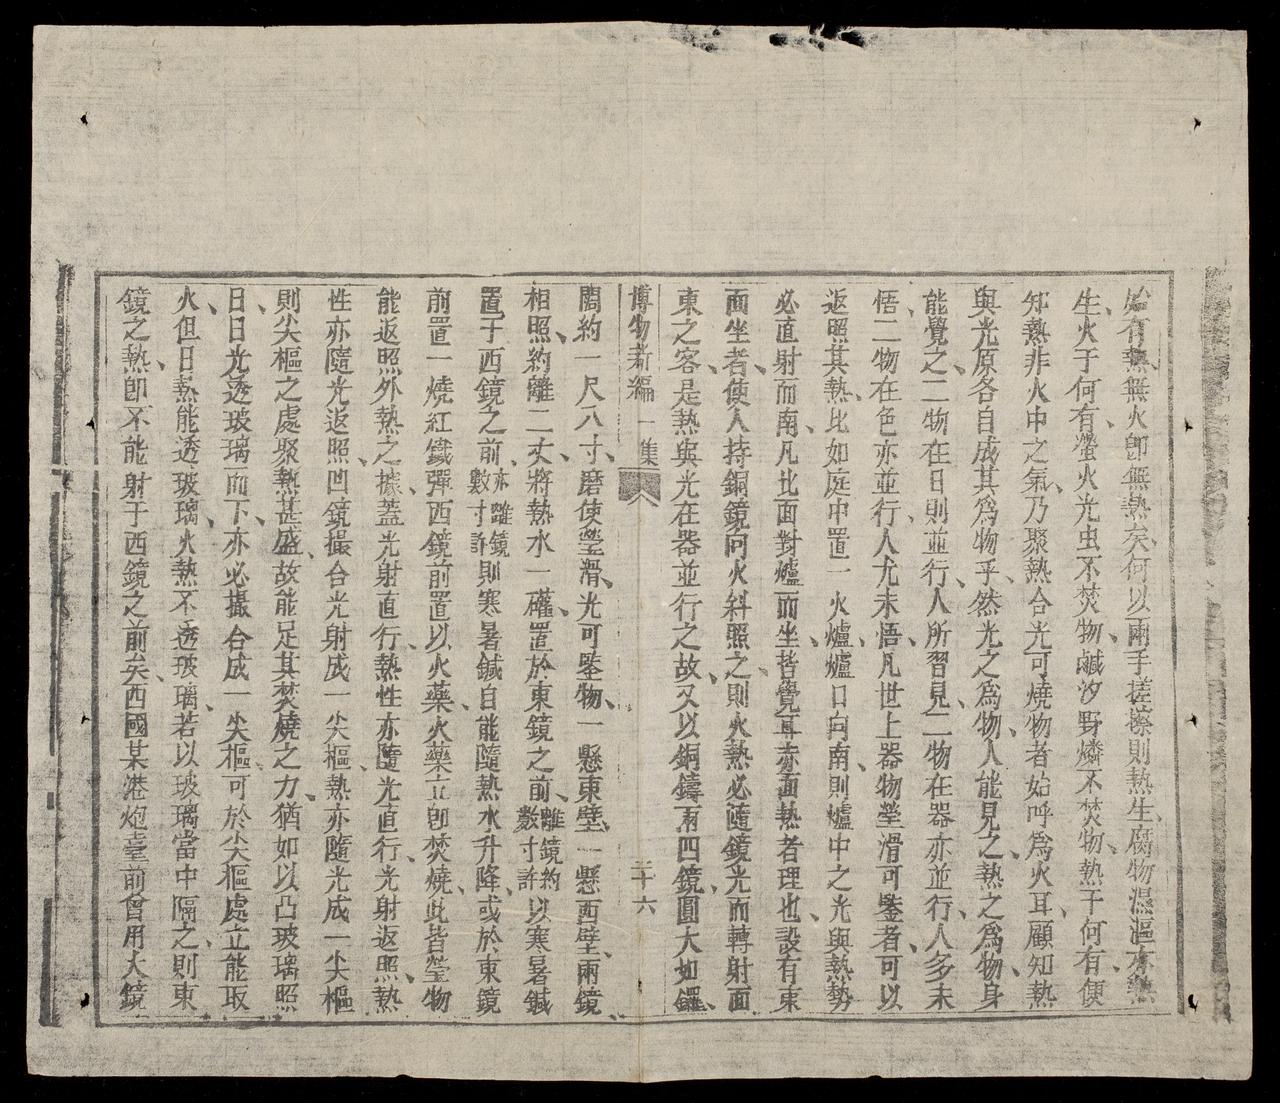 始有熱無火卽無熱矣何以兩手搓擦則熱生腐物濕漚亦熱
生火于何有螢火光虫不焚物鹹汐野燐不焚物熱于何有便
知熱非火中之氣乃聚熱合光可燒物者始呼爲火耳顧知熱
與光原各自成其爲物乎然光之爲物人能見之熱之爲物身
能覺之二物在日則並行人所習見二物在器亦並行人多未
悟二物在色亦並行人尤未悟凡世上器物瑩滑可鑒者可以
返照其熱比如庭中置一火爐爐口向南則爐中之光與熱勢
必直射而南凡北面對爐而坐皆覺耳赤面熱者理也設有東
面坐者使人持銅鏡向火斜照之則火熱必隨鏡光而轉射面
東之客是熱與光在器並行之故又以銅鑄兩凹鏡圓大如鑼
博物新編 一集 二十六
濶約一尺八寸磨使瑩滑光可鑒物一懸東壁一懸西壁兩鏡
相照約離二丈將熱水一礶置於東鏡之前離鏡約數寸許以寒暑鍼
置于西鏡之前亦離鏡數寸許則寒暑鍼自能隨熱水升降或於東鏡
前置一燒紅鐵彈西鏡前置以火藥火藥立卽焚燒此皆瑩物
能返照外熱之據蓋光射直行熱性亦隨光直行光射返照熱
性亦隨光返照凹鏡撮合光射成一尖樞熱亦隨光成一尖樞
則尖樞之處聚熱甚盛故能足其焚燒之力猶如以凸玻璃照
日日光透玻璃而下亦必撮合成一尖樞可於尖樞處立能取
火但日熱能透玻璃火熱不透玻璃若以玻璃當中隔之則東
鏡之熱卽不能射于西鏡之前矣西國某港炮臺前曾用大鏡